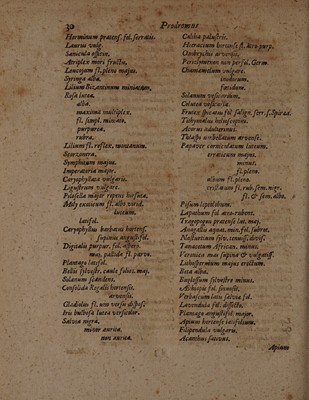 30
Prodromus
Horminum pratens. fol. serratis.
Laurus vulg.
Sanicula officin.
Atriplex marit fructu.
Leucojum fl. pleno majus.
Syringa alba.
Lilium Bizantinum miniatum.
Rosa lutea.
alba.
maxima multiplex.
fl. simpl. miniato.
purpurea.
rubra.
Lilium fl. reflex. montanum.
Scorzonera.
Symphitum majus.
Imperatoria major.
Caryophyllata vulgaris.
Ligustrum vulgare.
Pilosella major repens hirsuta.
Moly fl. albo
luteum.
latifol.
Caryophyllus barbatus hortens.
supinus angustifol.
Digitalis purpur. fol. asper.
maj. pallide fl. parvo.
Plantago latifol.
Bellis sylvestr. caule folios. maj.
Solanum scandens.
Consolida Regalis hortensis.
arvensis.
Gladiolus fl. uno versu dispos.
Iris bulbosa lutea versicolor.
Salvia nigra.
minor aurita.
non aurita.
Caltha palustris.
Hieracium hortense fl. atro purp.
Onobrychis arvensis.
Periclymenon non perfol. Germ.
Chamæmelum vulgare.
inodorum.
fœtidum.
Solanum vesicarium.
Colutea vesicaria.
Frutex spicatus fol. salign. serr. s. Spiræa.
Tithymalus helioscopius.
Acorus adulterinus.
Thlaspi umbellatum arvense.
Papaver corniculatum luteum.
erraticum majus.
minus.
fl. pleno.
album fl. pleno.
cristatum fl. rub. sem. nigr.
fl. & sem. albo.
Pisum
Lapathum fol. atro-rubens.
Tragopogon pratense lut. maj.
Anagallis aquat. min. fol. subrot.
Nasturtium
Tanacetum African. minus.
Veronica mas supina & vulgatiss.
Lithospermum majus erectum.
Beta alba.
Buglossum sylvestre minus.
Atriplex fol. sinuosis.
Verbasculum latu salvia fol.
Lavendula fol. dissecto.
Plantago angustifol. major.
Apium hortense latifolium.
Filipendula vulgaris.
Acanthus sativus.
Apium